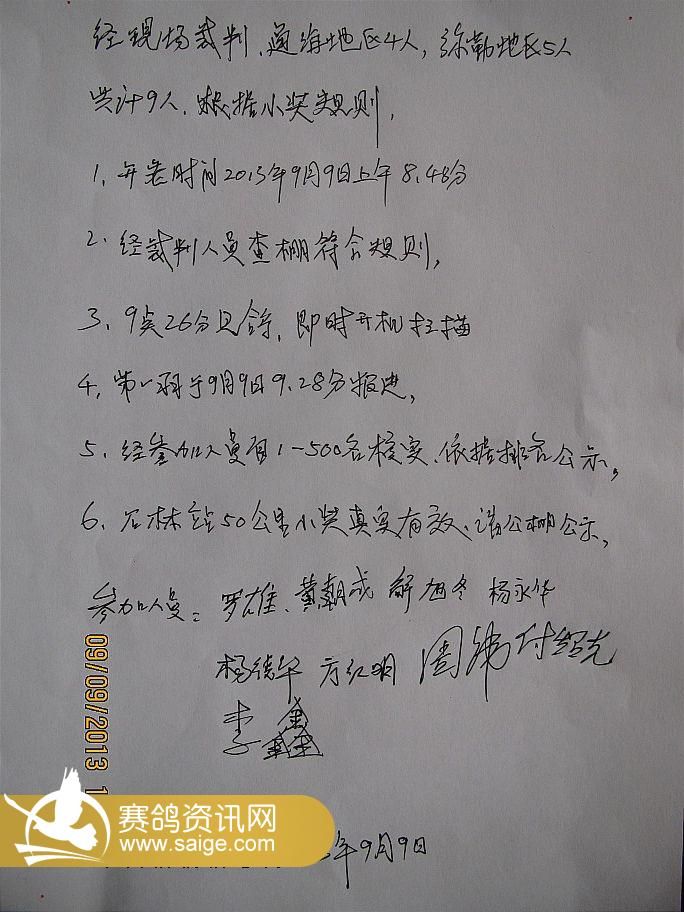 经现场裁判、通海地区4人，弥勒地区5人
共计9人，根据小奖规则，
1、开笼时间2013年9月9日上午8.48分
2、经裁判人员查棚符合规则，
3、9点26分见鸽，即时开机扫描
4、第一羽于9月9日9.28分报进，
5、经参加人员自1-500名核实、依据排名公示，
6、石林站50公里小奖真实有效、请公棚公示，
参加人员：罗雄、黄朝成 解旭冬 杨永华
杨德华 方红明 周伟 付绍克
李鑫
年9月9日
09/09/2013 1
赛鸽资讯网
www.saige.com